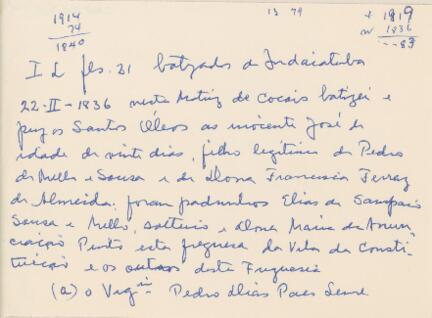 1914
74
1840
13 79
+ 1919
n 1836
--83
I L fls. 31 batizados de Indaiatuba
22-II-1836 nesta Matriz de Cocais batizei e
puz os Santos Óleos ao inocente José de
idade de vinte dias, filho legitimo de Pedro
de Mello e Sousa e de Dona Francisca Ferraz
de Almeida: foram padrinhos Elias de Sampaio
Sousa e Mello, solteiro e Dona Maria da Anun-
ciação Pinto esta freguesa da Vila da Consti-
tuição e os outros desta Freguesia
(a) o Vigrº Pedro Dias Paes Leme